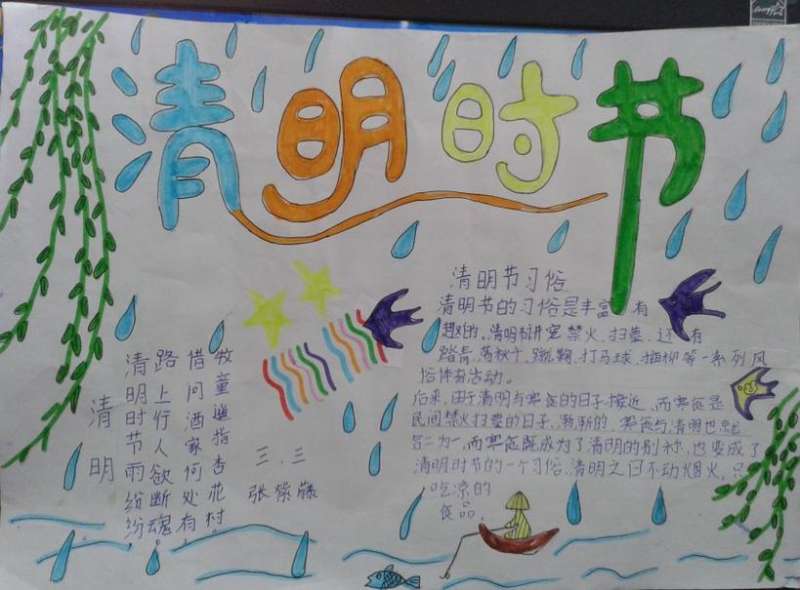 清明时节
清明
清明时节雨纷纷
路上行人欲断魂。
借问酒家何处有
牧童遥指杏花村
三.三
张紫藤
清明节习俗
清明节的习俗是丰富有
趣的。清明节讲究禁火、扫墓,还有
踏青、荡秋千、蹴鞠、打马球、插柳等一系列风
俗体育活动。
后来,由于清明与寒食的日子接近,而寒食是
民间禁火扫墓的日子,渐渐的,寒食与清明也
合二为一,而寒食既成为了清明的别称,也变成了
清明时节的一个习俗,清明之日不动烟火,只
吃凉的
食品。